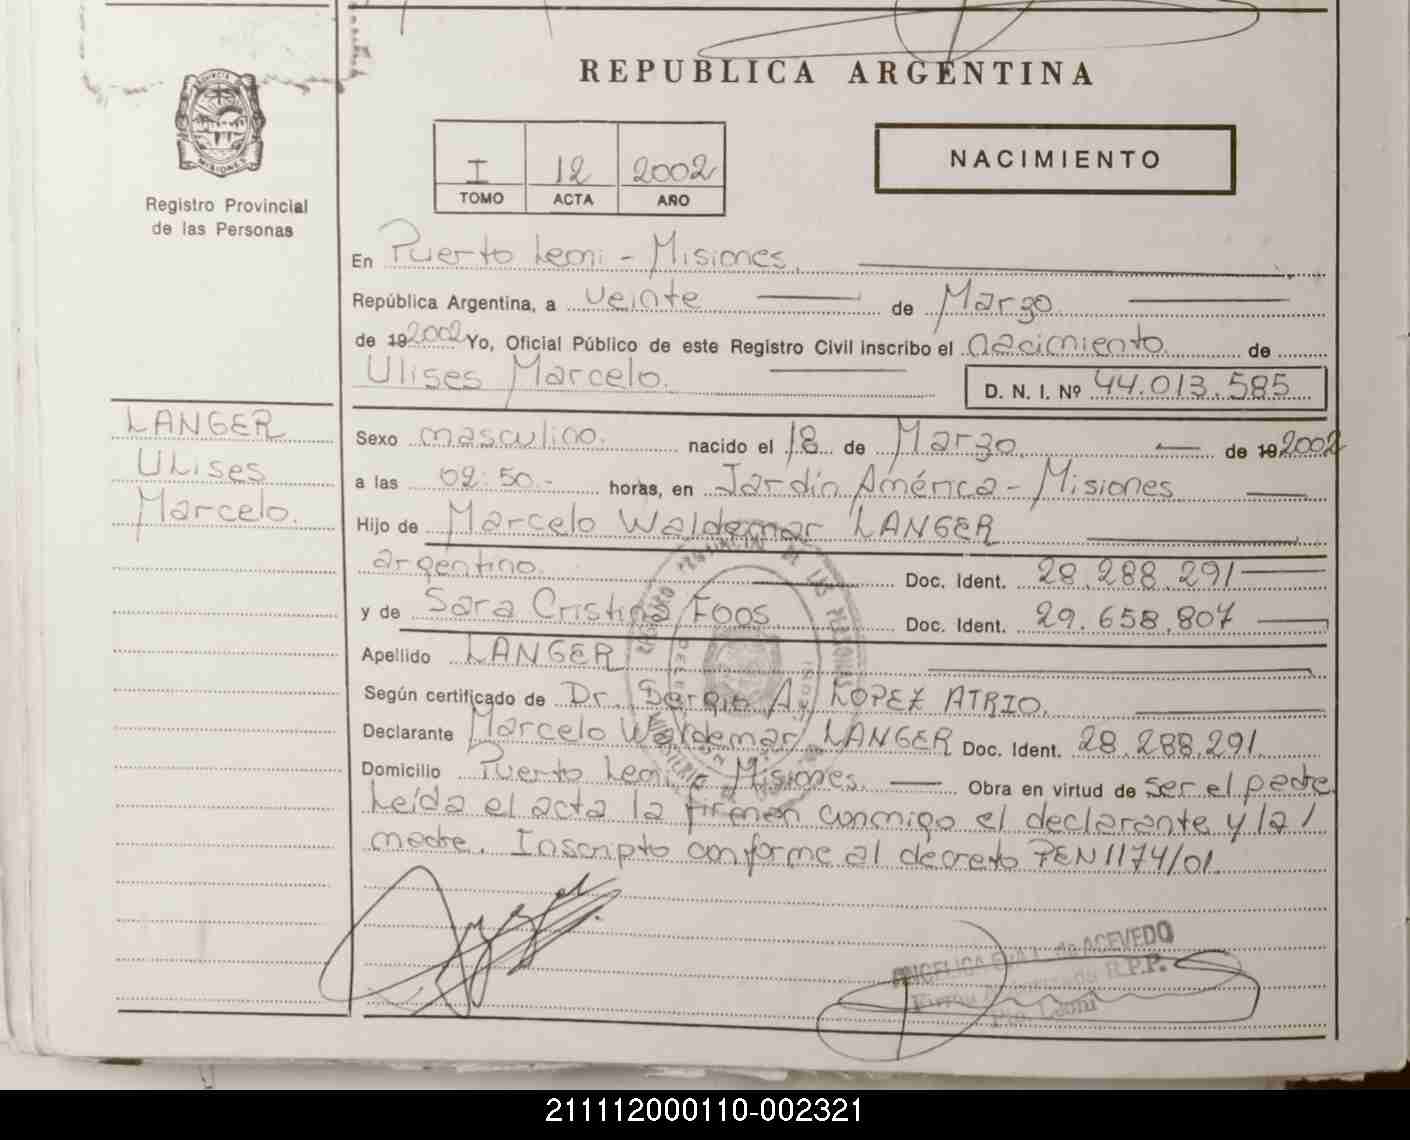 REPUBLICA ARGENTINA
MISIONES
Registro Provincial
de las Personas
I 12 2002
TOMO ACTA AÑO
NACIMIENTO
En Puerto Leoni - Misiones
República Argentina, a veinte de Marzo
de 19 2002 Yo, Oficial Público de este Registro Civil inscribo el nacimiento de
Ulises Marcelo. D. N. I. Nº 44.013.585
LANGER
Ulises
Marcelo.
Sexo masculino. nacido el 18 de Marzo de 19 2002
a las 02:50.- horas, en Jardín América - Misiones
Hijo de Marcelo Waldemar LANGER
argentino. Doc. Ident. 28.288.291
y de Sara Cristina Foos Doc. Ident. 29.658.807
Apellido LANGER
Según certificado de Dr. Sergio A. LOPEZ ATRIO.
Declarante Marcelo Waldemar LANGER Doc. Ident. 28.288.291
Domicilio Puerto Leoni - Misiones. Obra en virtud de ser el padre
Leída el acta la firman conmigo el declarante y la
madre. Inscripto conforme al decreto PEN 1174/01.
ANGELICA de ACEVEDO
R.P.P.
Pto. Leoni
211112000110-002321